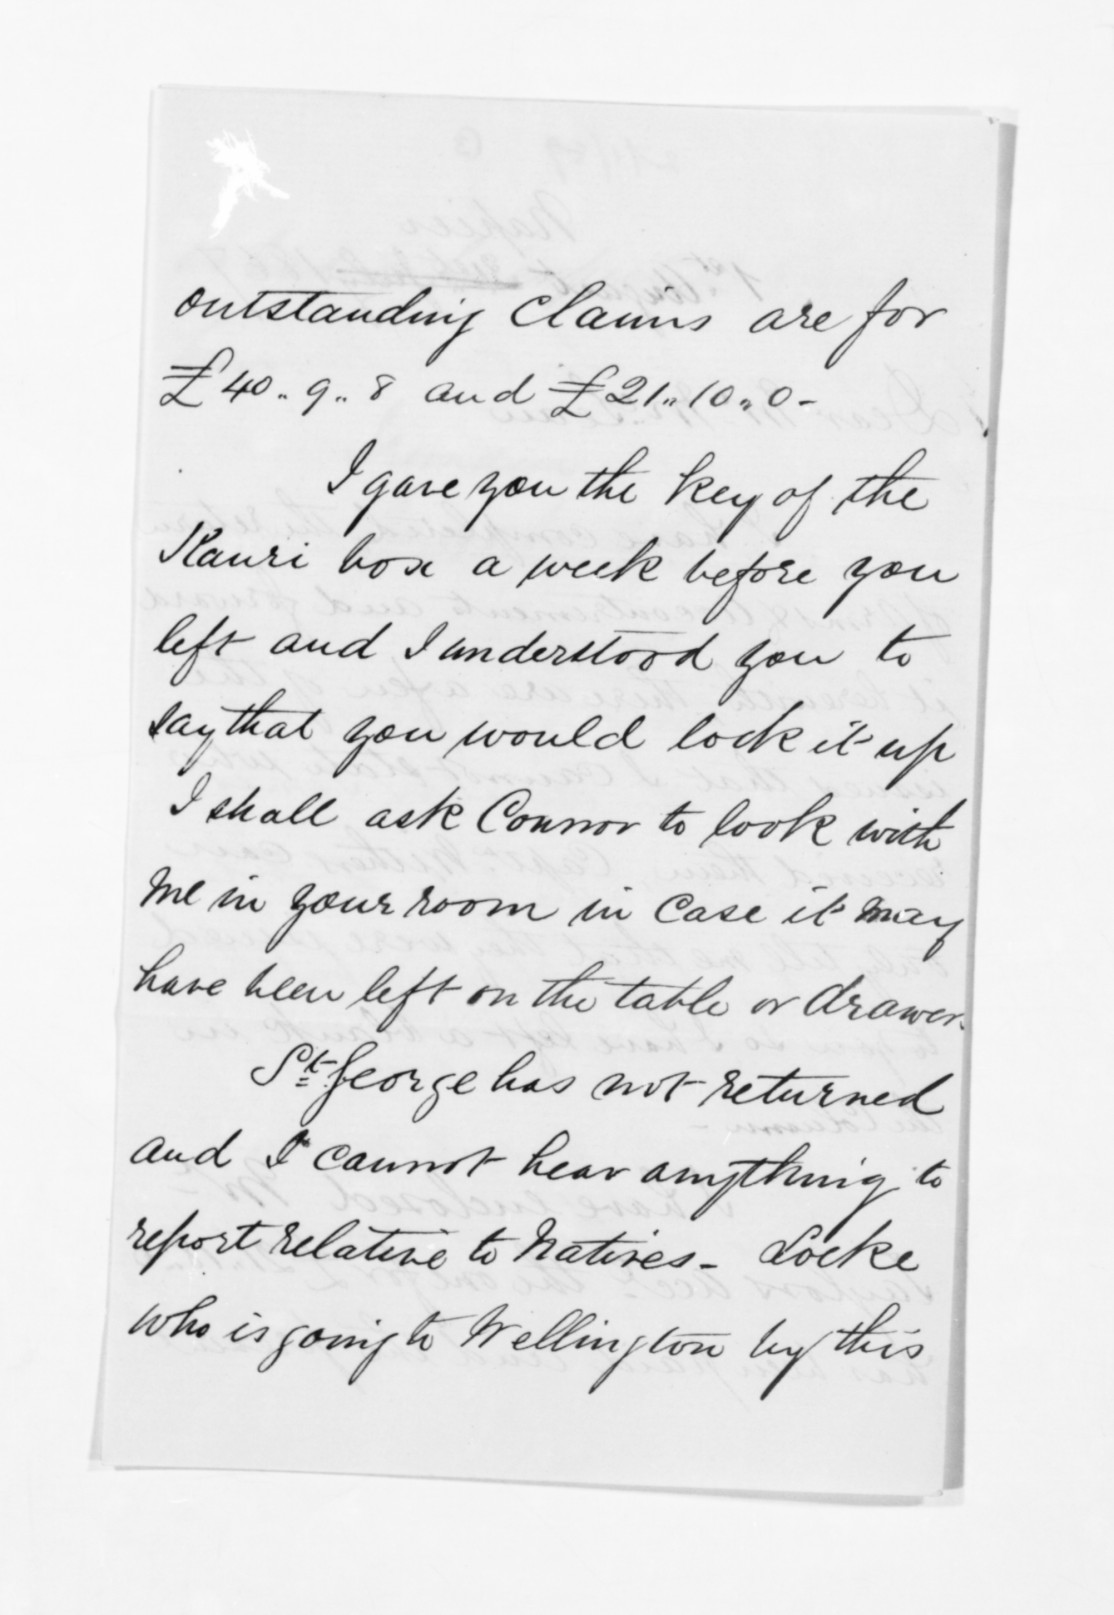 outstanding claims are for
£40.. 9.. 8 and £21.. 10.. 0 -
I gave you the key of the
Kauri box a week before you
left and I understood you to
say that you would lock it up
I shall ask Connor to look with
me in your room in case it may
have been left on the table or drawer.
St. George has not returned
and I cannot hear anything to
report relative to Natives - Locke
who is going to Wellington by this